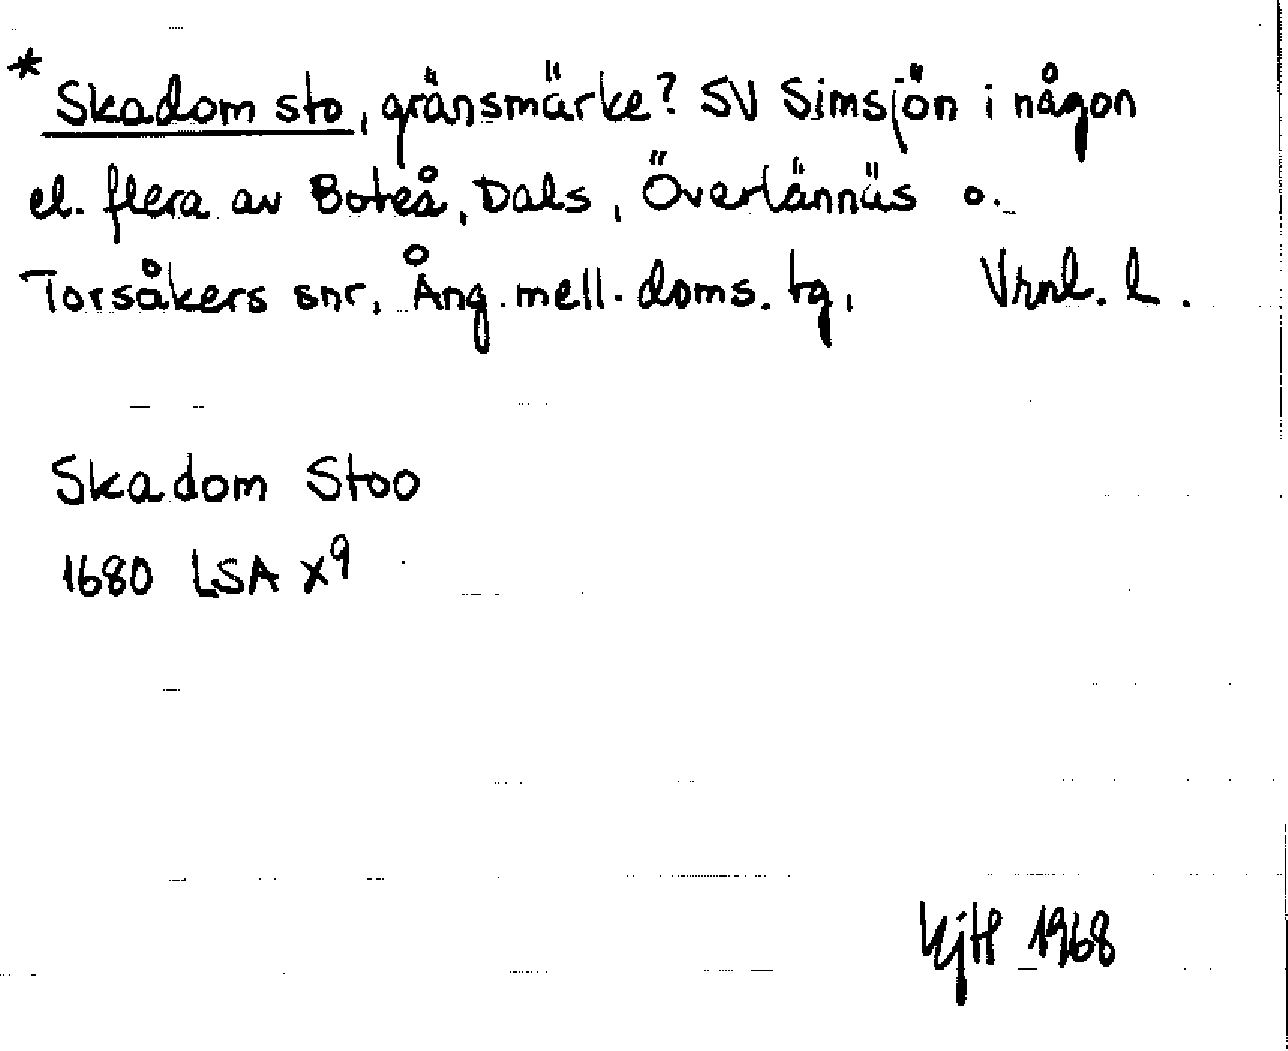 * Skadom sto, gränsmärke? SV Simsjön i någon
el. flera av Boteå, Dals, Överlännäs o.
Torsåkers snr, Ång. mell. doms. tg, Vrnl. l.
Skadom Stoo
1680 LSA X9
KjH 1968